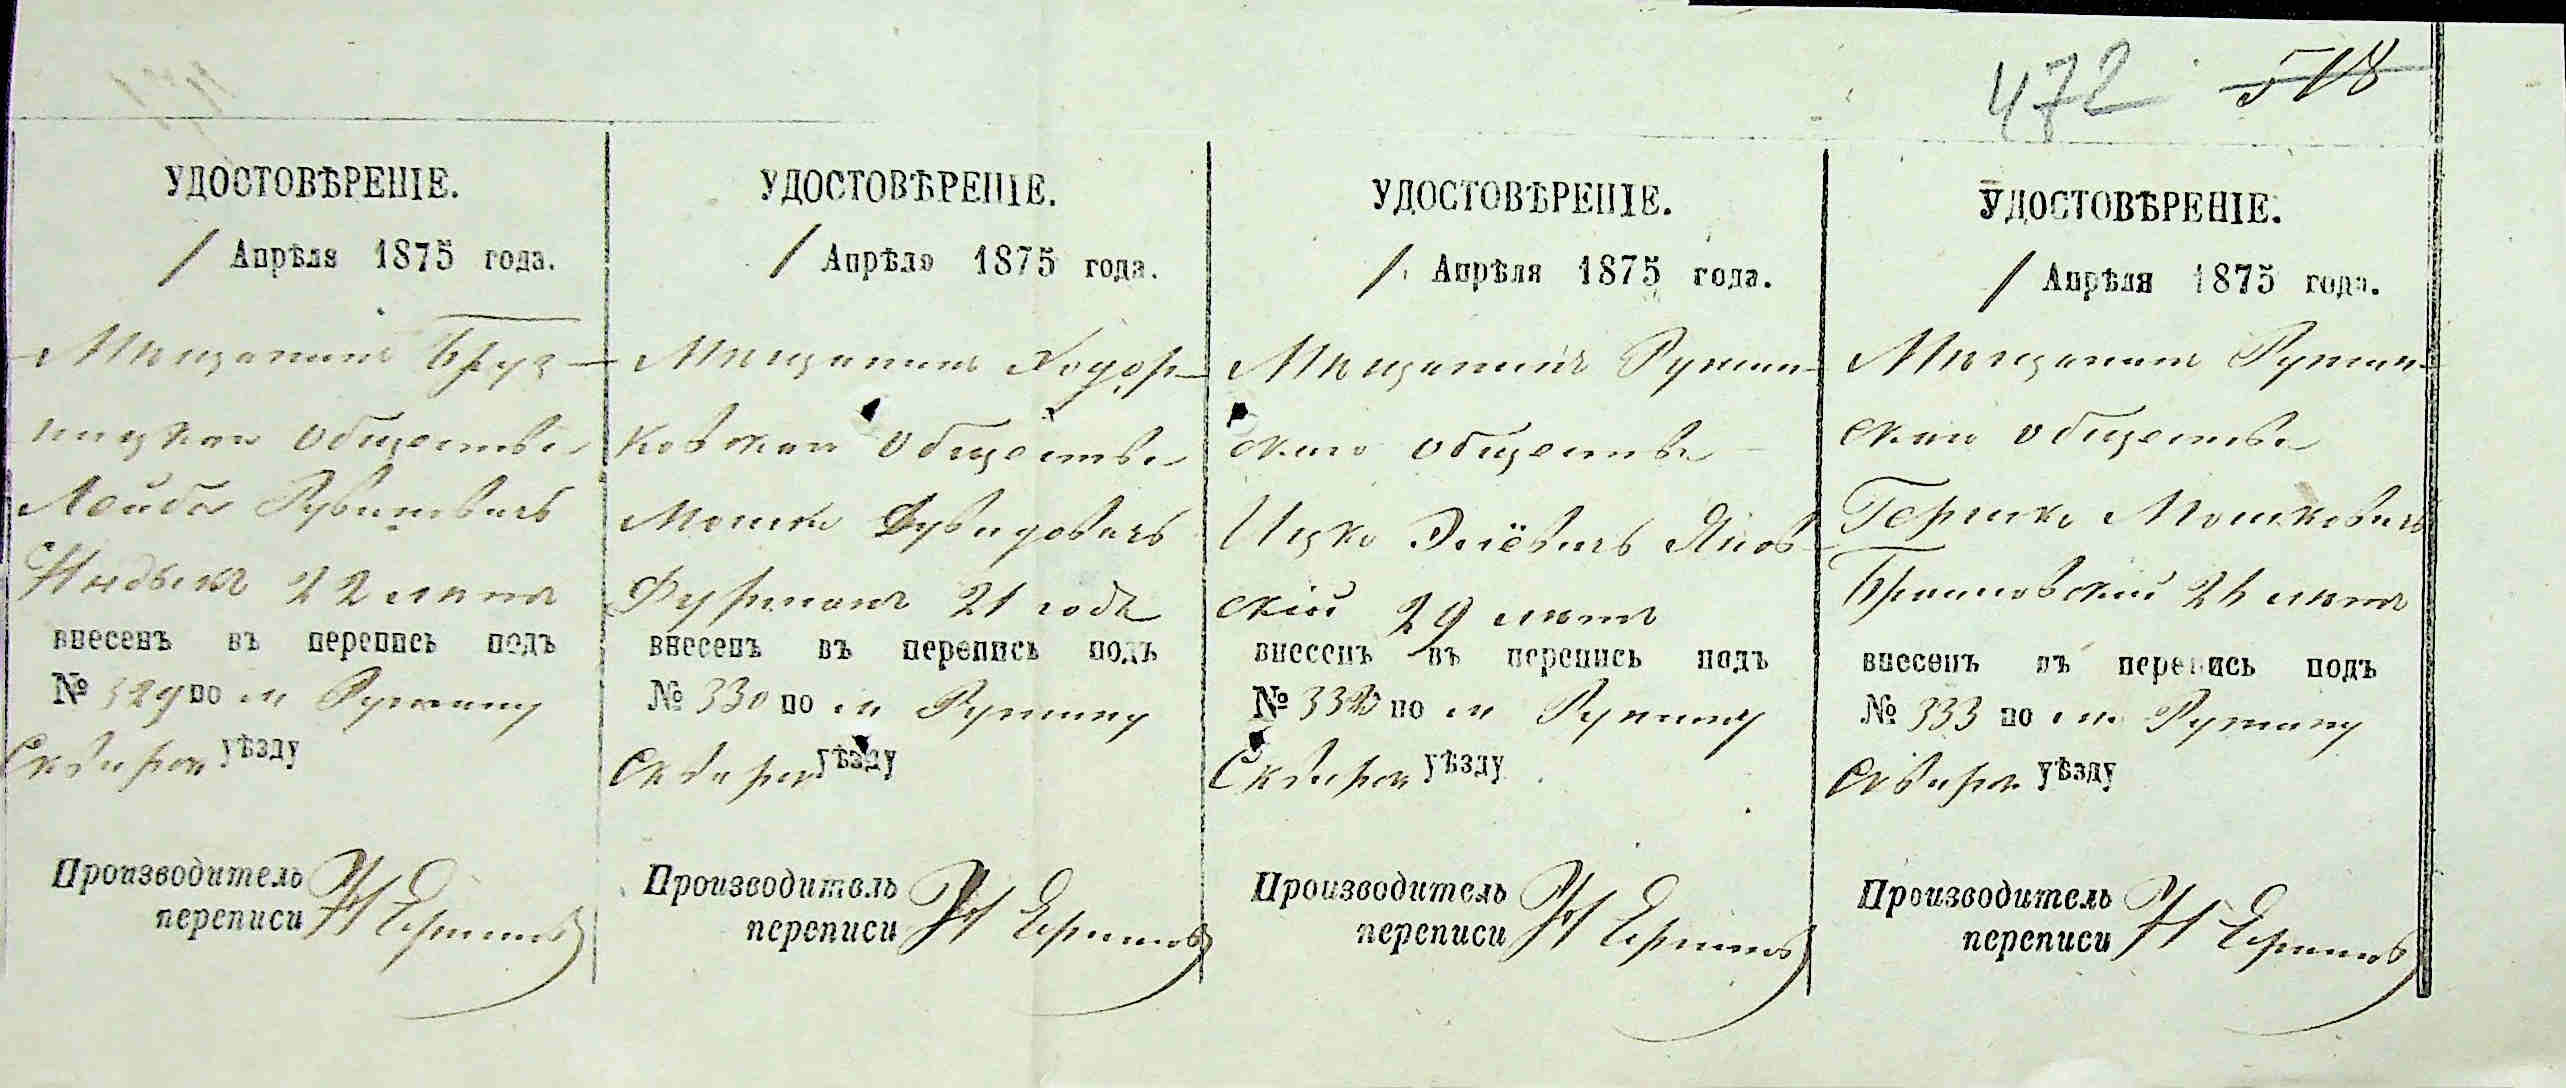 472 518
УДОСТОВѢРЕНІЕ.
1 Апрѣля 1875 года.
Мѣщанинъ Бруз-
ницкаго общества
Лейба Рувиновичъ
Индыкъ 22 лѣтъ
внесенъ въ перепись подъ
№ 329 по м Ружину
Сквирск уѣзду
Производитель
переписи
УДОСТОВѢРЕНІЕ.
1 Апрѣля 1875 года.
Мѣщанинъ Ходор-
ковскаго общества
Мошко Дувидовичъ
Фурманъ 21 года
внесенъ въ перепись подъ
№ 330 по м Ружину
Сквирск уѣзду
Производитель
переписи
УДОСТОВѢРЕНІЕ.
1 Апрѣля 1875 года.
Мѣщанинъ Ружин-
скаго общества
Ицко Элёвичъ Янов-
скій 29 лѣтъ
внесенъ въ перепись подъ
№ по м Ружину
Сквирск уѣзду
Производитель
переписи
УДОСТОВѢРЕНІЕ.
1 Апрѣля 1875 года.
Мѣщанинъ Ружин-
скаго общества
Гершко Мошковичъ
лѣтъ
внесенъ въ перепись подъ
№ 333 по м. Ружину
Сквирск уѣзду
Производитель
переписи